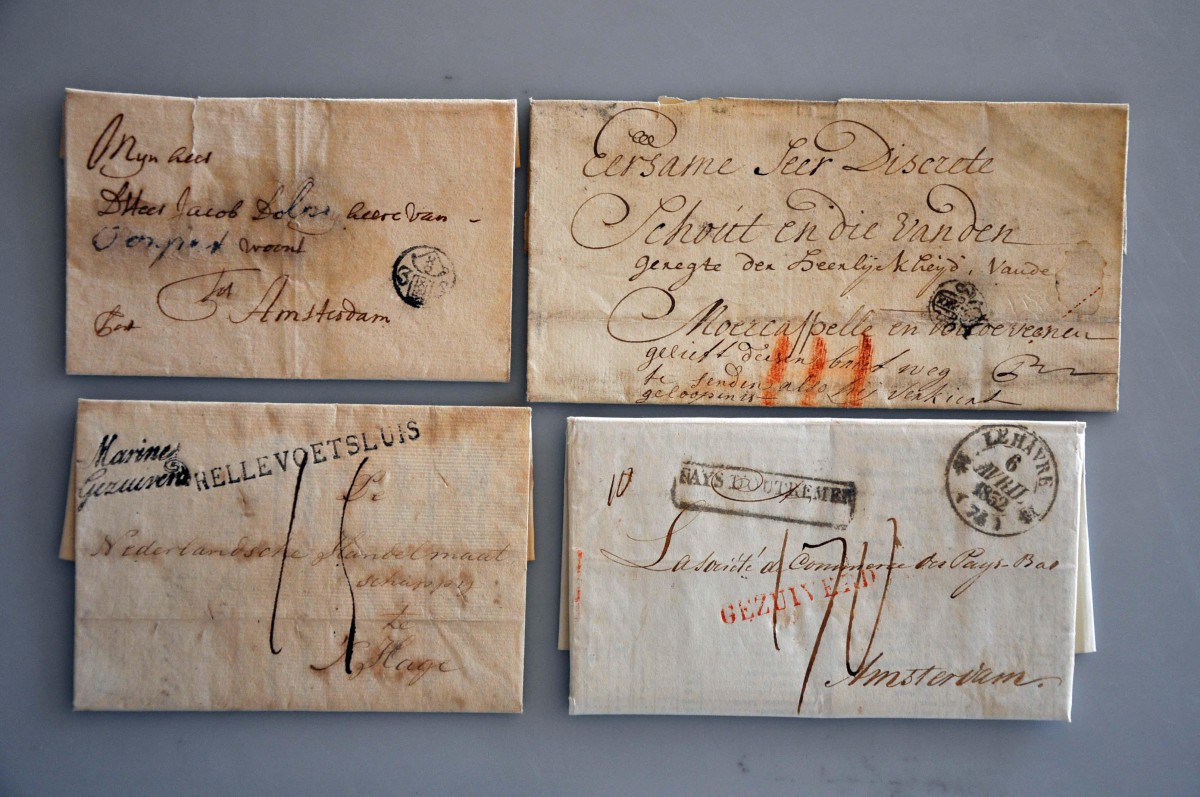 Mijn heer
DHeer Jacob heere van
woont
Tot
Amsterdam
Eersame Seer Discrete
Schout en die vanden
geregte der Heerlijckheijd, vande
Moercappelle en
gelieft desen weg
te senden also
Marine
Gezuiverd
HELLEVOETSLUIS
De
Nederlandsche Handelmaat
schappij
te
Hage
LE HAVRE
6
AVRIL
1852
(74)
10
PAYS D'OUTREMER
La société de Commerce des Pays-Bas
GEZUIVERD
170
Amsterdam.